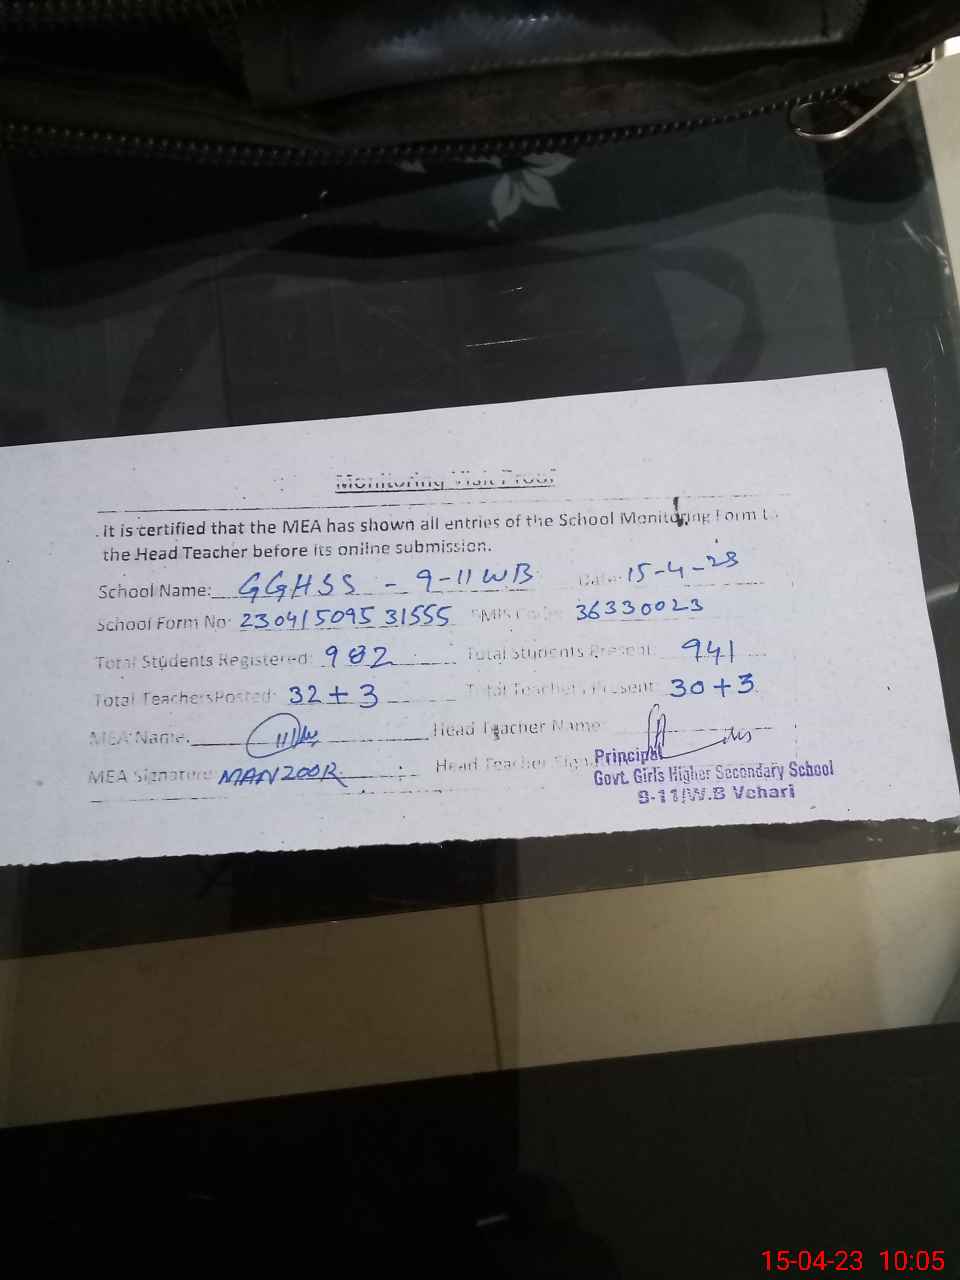 Monitoring Visit Proof
It is certified that the MEA has shown all entries of the School Monitoring Form to
the Head Teacher before its online submission.
School Name: GGHSS - 9-11WB Date: 15-4-23
School Form No: 23041509531555 EMIS Code: 36330023
Total Students Registered: 982 Total Students Present: 941
Total Teachers Posted: 32+3 Total Teachers Present: 30+3
MEA Name: Head Teacher Name:
MEA Signature: MANZOOR Head Teacher Sign
Principal
Govt. Girls Higher Secondary School
9-11/W.B Vehari
15-04-23 10:05